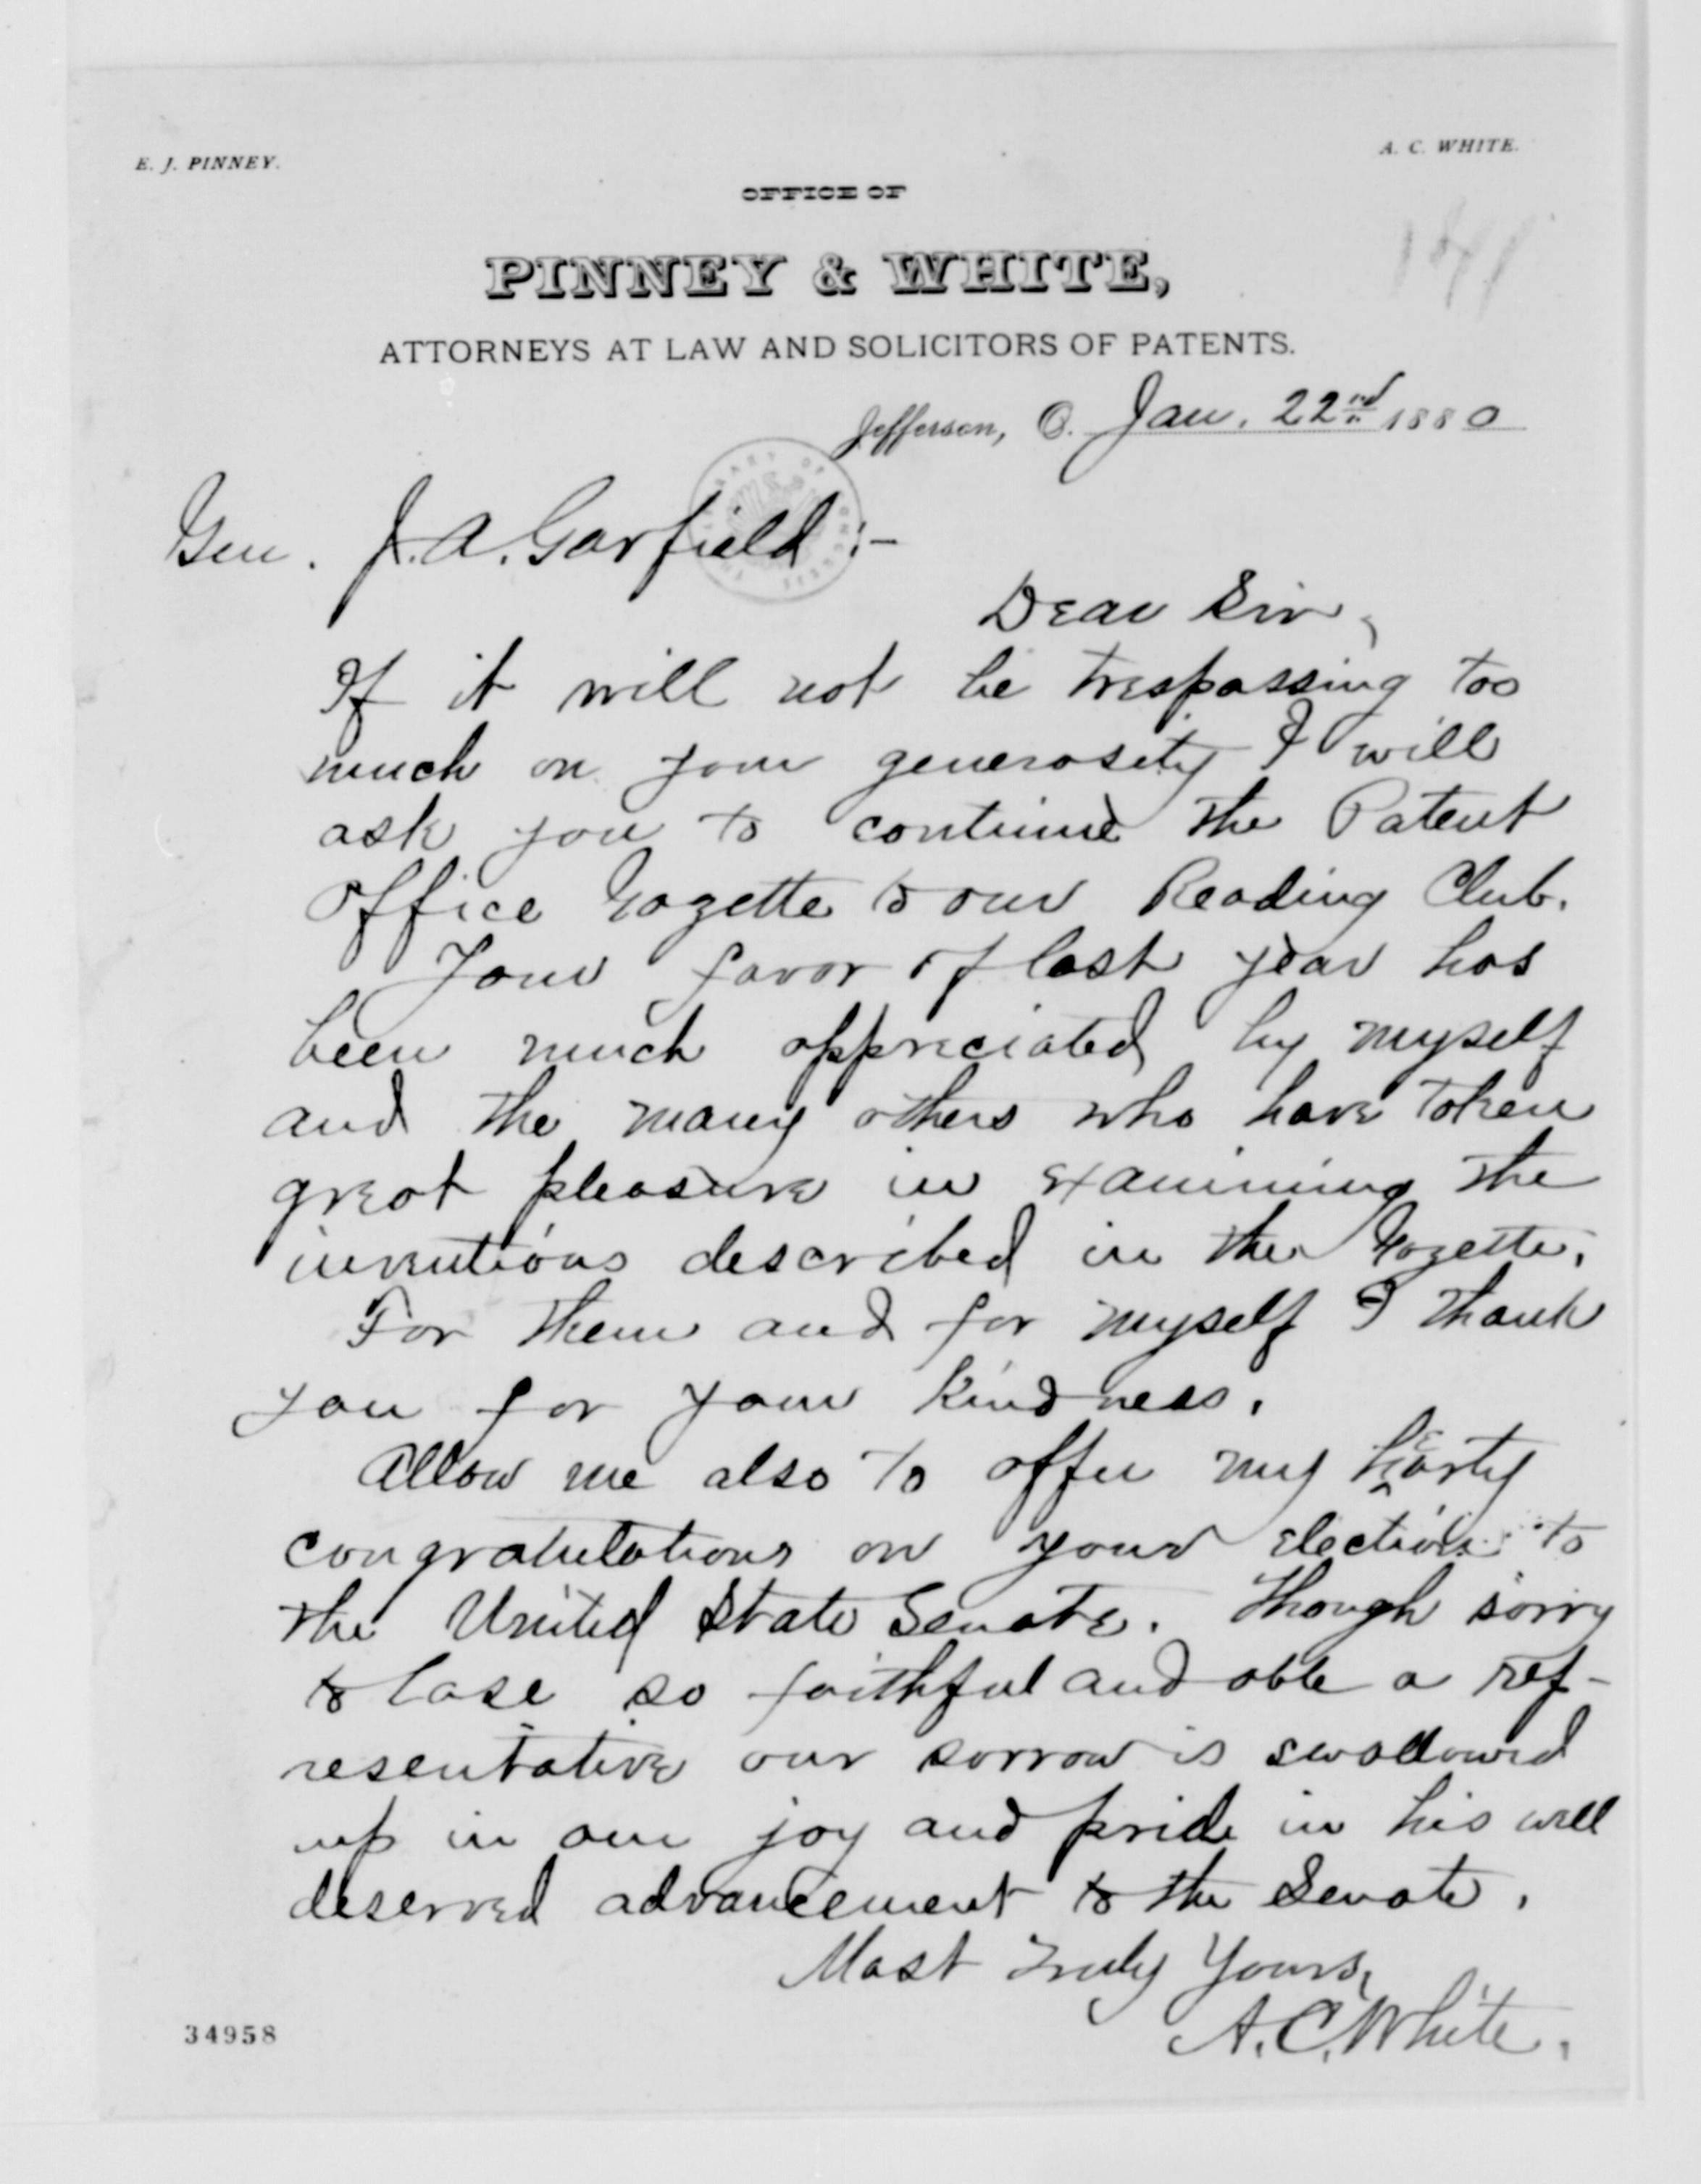 E. J. PINNEY.
A. C. WHITE.
OFFICE OF
PINNEY & WHITE,
ATTORNEYS AT LAW AND SOLICITORS OF PATENTS.
Jefferson, O. Jan. 22nd 1880
Gen. J. A. Garfield :-
Dear Sir,
If it will not be trespassing too
much on your generosity I will
ask you to continue the Patent
Office Gazette to our Reading Club.
Your favor of last year has
been much appreciated by myself
and the many others who have taken
great pleasure in examining the
inventions described in the Gazette.
For them and for myself I thank
you for your kindness.
Allow me also to offer my hearty
congratulations on your election to
the United State Senate. Though sorry
to lose so faithful and able a rep-
resentative our sorrow is swallowed
up in our joy and pride in his well
deserved advancement to the Senate.
Most Truly Yours,
A. C. White.
34958